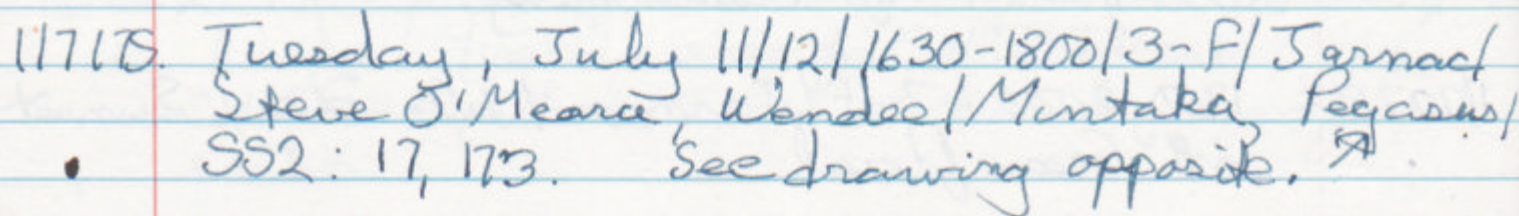 11717S. Tuesday, July 11/12/1630-1800/3-F/Jarnac/
Steve O'Meara, Wendee/Mintaka, Pegasus/
SS2: 17, 173. See drawing opposite. ↗